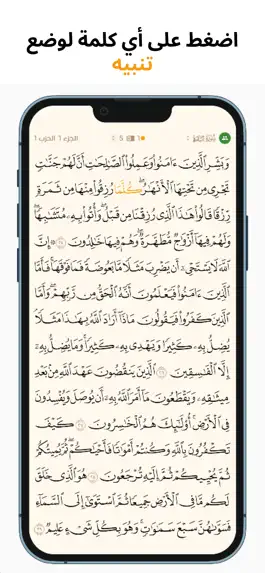 اضغط على أي كلمة لوضع
تنبيه
سُورَةُ البَقَرَةِ 5 الجزء 1 الحزب 1
وَبَشِّرِ ٱلَّذِينَ ءَامَنُوا۟ وَعَمِلُوا۟ ٱلصَّـٰلِحَـٰتِ أَنَّ لَهُمْ جَنَّـٰتٍ
تَجْرِى مِن تَحْتِهَا ٱلْأَنْهَـٰرُ ۖ كُلَّمَا رُزِقُوا۟ مِنْهَا مِن ثَمَرَةٍ
رِّزْقًا ۙ قَالُوا۟ هَـٰذَا ٱلَّذِى رُزِقْنَا مِن قَبْلُ ۖ وَأُتُوا۟ بِهِۦ مُتَشَـٰبِهًا ۖ
وَلَهُمْ فِيهَآ أَزْوَٰجٌ مُّطَهَّرَةٌ ۖ وَهُمْ فِيهَا خَـٰلِدُونَ ٢٥ ۞ إِنَّ
ٱللَّهَ لَا يَسْتَحْىِۦٓ أَن يَضْرِبَ مَثَلًا مَّا بَعُوضَةً فَمَا فَوْقَهَا ۚ فَأَمَّا
ٱلَّذِينَ ءَامَنُوا۟ فَيَعْلَمُونَ أَنَّهُ ٱلْحَقُّ مِن رَّبِّهِمْ ۖ وَأَمَّا
ٱلَّذِينَ كَفَرُوا۟ فَيَقُولُونَ مَاذَآ أَرَادَ ٱللَّهُ بِهَـٰذَا مَثَلًا ۘ
يُضِلُّ بِهِۦ كَثِيرًا وَيَهْدِى بِهِۦ كَثِيرًا ۚ وَمَا يُضِلُّ بِهِۦٓ
إِلَّا ٱلْفَـٰسِقِينَ ٢٦ ٱلَّذِينَ يَنقُضُونَ عَهْدَ ٱللَّهِ مِنۢ بَعْدِ
مِيثَـٰقِهِۦ وَيَقْطَعُونَ مَآ أَمَرَ ٱللَّهُ بِهِۦٓ أَن يُوصَلَ وَيُفْسِدُونَ
فِى ٱلْأَرْضِ ۚ أُو۟لَـٰٓئِكَ هُمُ ٱلْخَـٰسِرُونَ ٢٧ كَيْفَ
تَكْفُرُونَ بِٱللَّهِ وَكُنتُمْ أَمْوَٰتًا فَأَحْيَـٰكُمْ ۖ ثُمَّ يُمِيتُكُمْ
ثُمَّ يُحْيِيكُمْ ثُمَّ إِلَيْهِ تُرْجَعُونَ ٢٨ هُوَ ٱلَّذِى خَلَقَ
لَكُم مَّا فِى ٱلْأَرْضِ جَمِيعًا ثُمَّ ٱسْتَوَىٰٓ إِلَى ٱلسَّمَآءِ
فَسَوَّىٰهُنَّ سَبْعَ سَمَـٰوَٰتٍ ۚ وَهُوَ بِكُلِّ شَىْءٍ عَلِيمٌ ٢٩